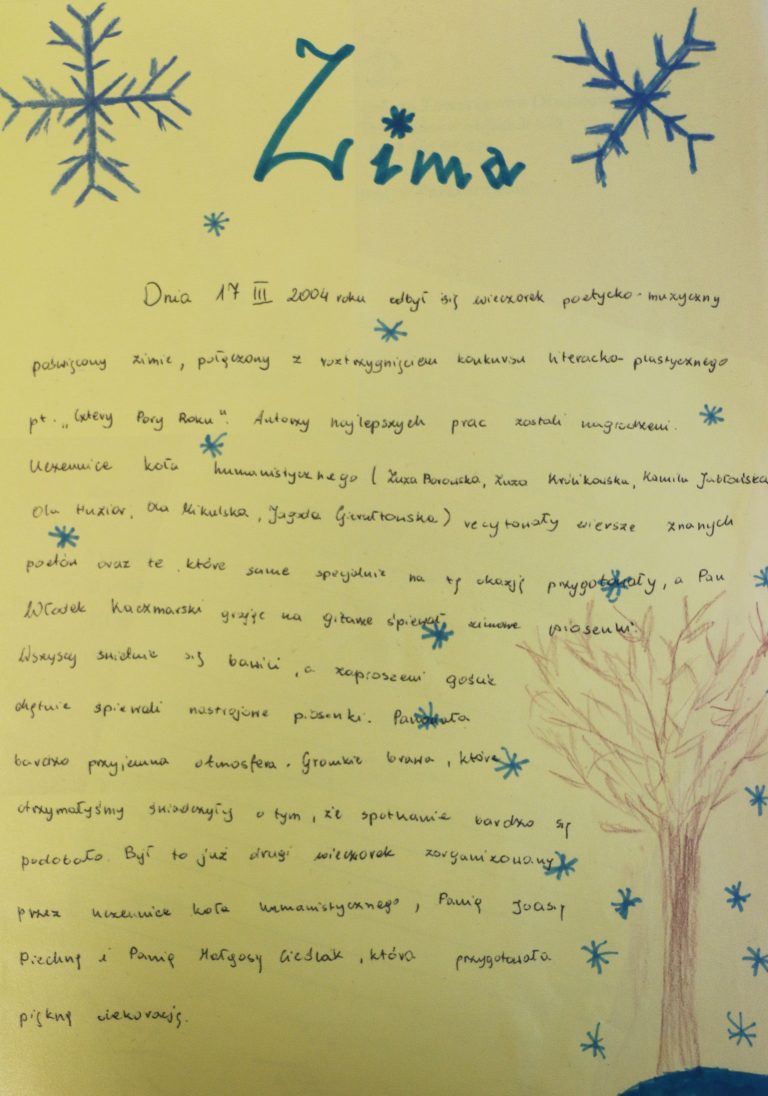 Zima
Dnia 17 III 2004 roku odbył się wieczorek poetycko-muzyczny
poświęcony zimie, połączony z roztrzygnięciem konkursu literacko-plastycznego
pt. „Cztery Pory Roku". Autorzy najlepszych prac zostali nagrodzeni.
Uczennice koła humanistycznego (Zuza Borowska, Zuza Królikowska, Kamila Jabłońska
Ola Huzior, Ola Mikulska, Jagoda Gierałtowska) recytowały wiersze znanych
poetów oraz te które same specjalnie na tę okazję przygotowały, a Pan
Włodek Kaczmarski grając na gitarze śpiewał zimowe piosenki.
Wszyscy świetnie się bawili, a zaproszeni goście
chętnie śpiewali nastrojowe piosenki. Panowała
bardzo przyjemna atmosfera. Gromkie brawa, które
otrzymałyśmy świadczyły o tym, że spotkanie bardzo się
podobało. Był to już drugi wieczorek zorganizowany
przez uczennice koła humanistycznego, Panią Joasię
Piechnę i Panią Małgosę Cieślak, która przygotowała
piękną dekorację.